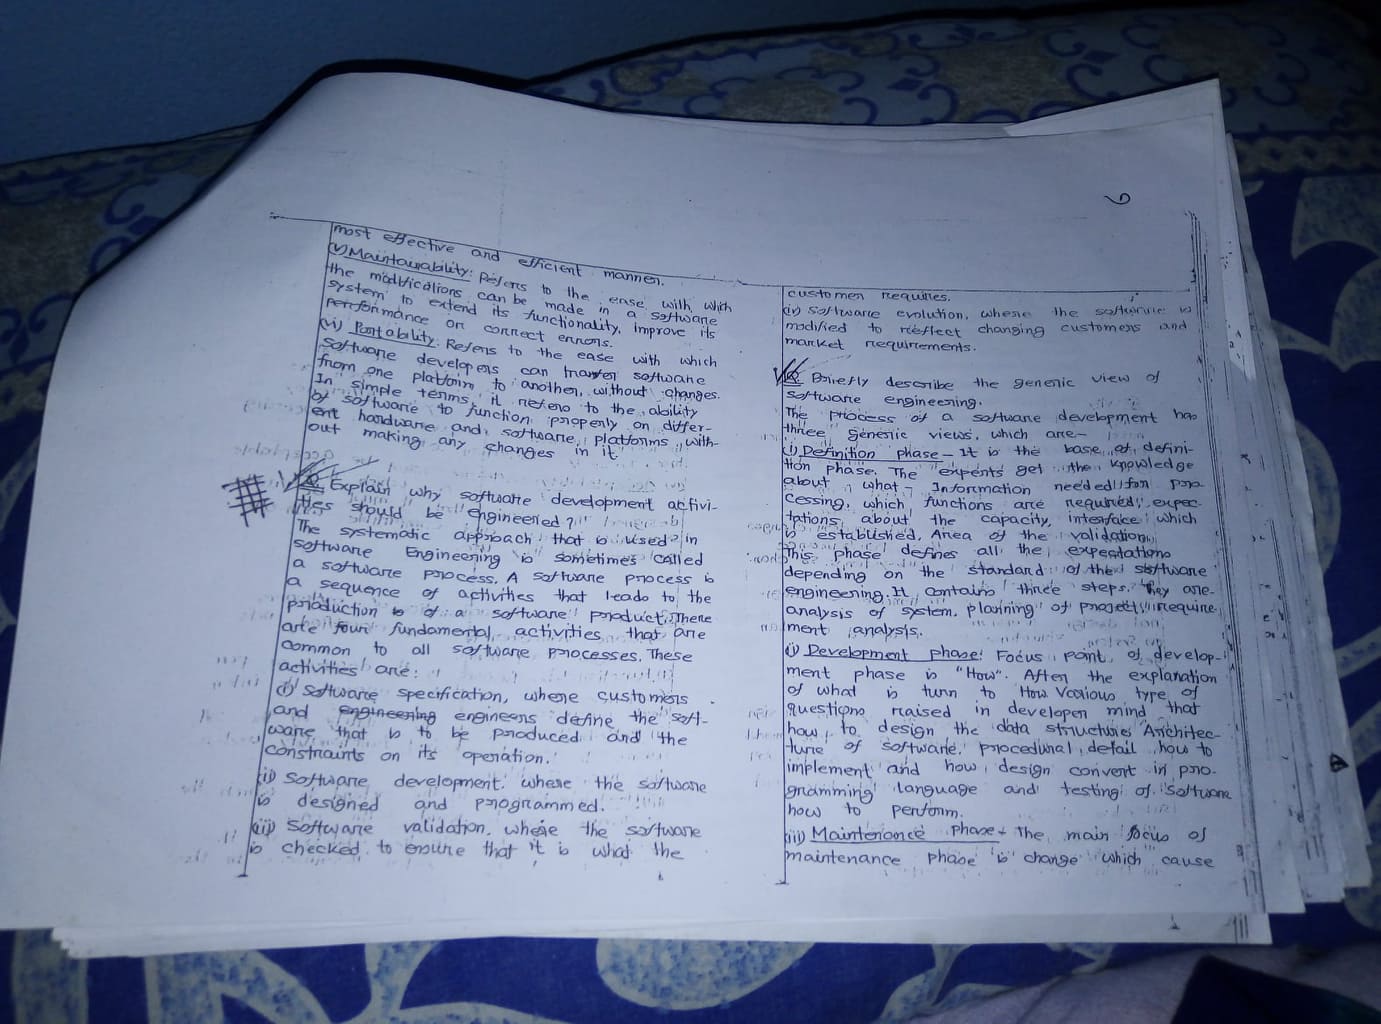 6
most effective and efficient manner.
(v) Maintainability: Refers to the ease with which
the modifications can be made in a software
system to extend its functionality, improve its
performance or correct errors.
(vi) Portability: Refers to the ease with which
software developers can transfer software
from one platform to another, without changes.
In simple terms, it refers to the ability
of software to function properly on differ-
ent hardware and software platforms with-
out making any changes in it.
Q. Explain why software development activi-
ties should be engineered?
The systematic approach that is used in
software Engineering is sometimes called
a software process. A software process is
a sequence of activities that leads to the
production is of a software product. There
are four fundamental activities that are
common to all software processes. These
activities are:
(i) Software specification, where customers
and engineering engineers define the soft-
ware that is to be produced and the
constraints on its operation.
(ii) Software development. where the software
is designed and programmed.
(iii) Software validation. where the software
is checked to ensure that it is what the
customer requires.
(iv) Software evolution, where the software is
modified to reflect changing customers and
market requirements.
Q. Briefly describe the generic view of
software engineering.
The process of a software development has
three generic views, which are-
(i) Definition phase - It is the base of defini-
tion phase. The experts get the knowledge
about what Information needed for pro
cessing, which functions are required, expec-
tations about the capacity, interface which
is established, Area of the validation.
This phase defines all the expectations
depending on the standard of the software
engineering. It contains three steps. They are-
analysis of system, planning of project, require
ment analysis.
(i) Development phase: Focus point of develop-
ment phase is "How". After the explanation
of what is turn to How Various type of
questions raised in developer mind that
how to design the data structure Architec-
ture of software. procedural detail how to
implement and how design convert in pro-
gramming language and testing of software
how to perform.
(iii) Maintenance phase- The main focus of
maintenance phase is change which cause